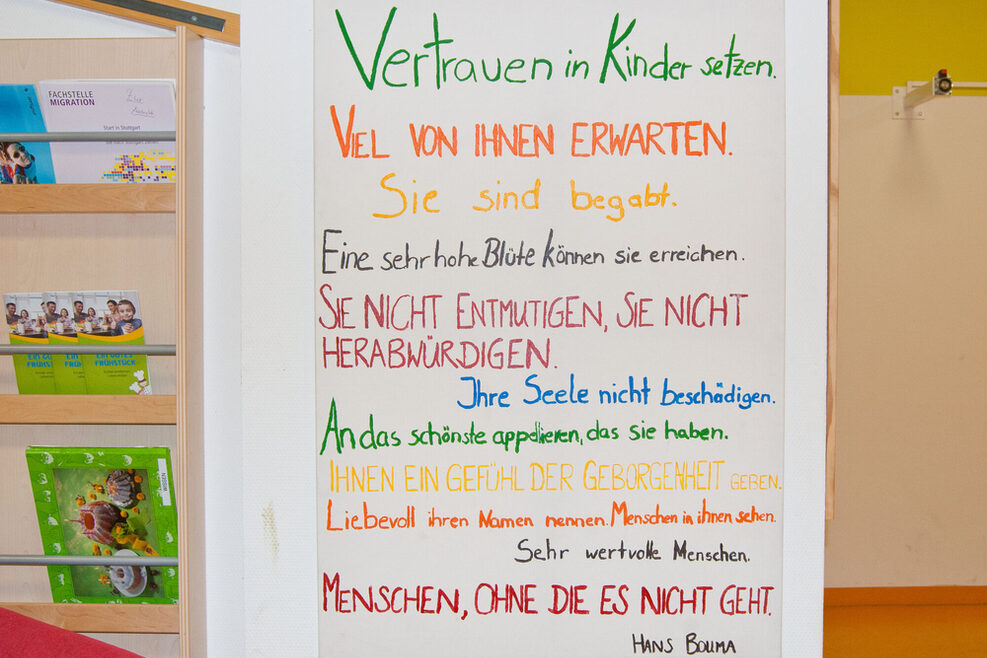 FACHSTELLE
MIGRATION
Start in Stuttgart
EIN GUTES
FRÜHSTÜCK
WISSEN
Vertrauen in Kinder setzen.
VIEL VON IHNEN ERWARTEN.
Sie sind begabt.
Eine sehr hohe Blüte können sie erreichen.
SIE NICHT ENTMUTIGEN, SIE NICHT
HERABWÜRDIGEN.
Ihre Seele nicht beschädigen.
An das schönste appellieren, das sie haben.
IHNEN EIN GEFÜHL DER GEBORGENHEIT GEBEN.
Liebevoll ihren Namen nennen. Menschen in ihnen sehen.
Sehr wertvolle Menschen.
MENSCHEN, OHNE DIE ES NICHT GEHT.
HANS BOUMA